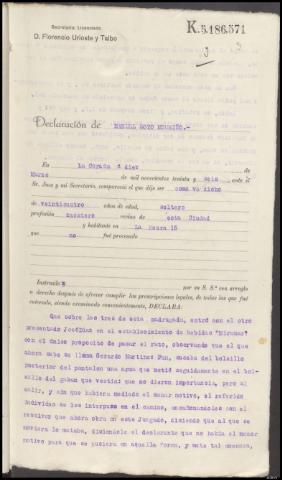 Secretaría: Licenciado
D. Florencio Urioste y Taibo
K.5.186.571
3
Declaración de MANUEL SOTO MOURIÑO.-
En La Coruña a diez de
Marzo de mil novecientos treinta y seis ante el
Sr. Juez y mi Secretario, compareció el que dijo ser como va dicho
de veinticuatro años de edad, soltero
profesión camarero vecino de esta Ciudad
y habitante en La 15
que no fué procesado
Instruido por su S.ª con arreglo
a derecho después de ofrecer cumplir las prescripciones legales, de todas las que fué
enterado, siendo examinado convenientemente, DECLARA:
Que sobre las tres de esta madrugada, entró con el otro
presentado José Díaz en el establecimiento de bebidas "Miramar"
con el único proposito de pasar el rato, observando que el que
ahora sabe se llama Gerardo Martinez Pan, sacaba del bolsillo
posterior del pantalon una arma que metió seguidamente en el bol-
sillo del gaban que vestia; que no dieron importancia, pero al
salir, y sin que hubiera mediado el menor motivo, el referido
individuo se les interpuso en el camino, amenazándolos con el
revolver que ahora obra en este Juzgado, diciendo que al que se
moviera lo mataba, diciendole el declarante que no habia el menor
motivo para que se pusiera en aquella forma, y ante tal amenaza,